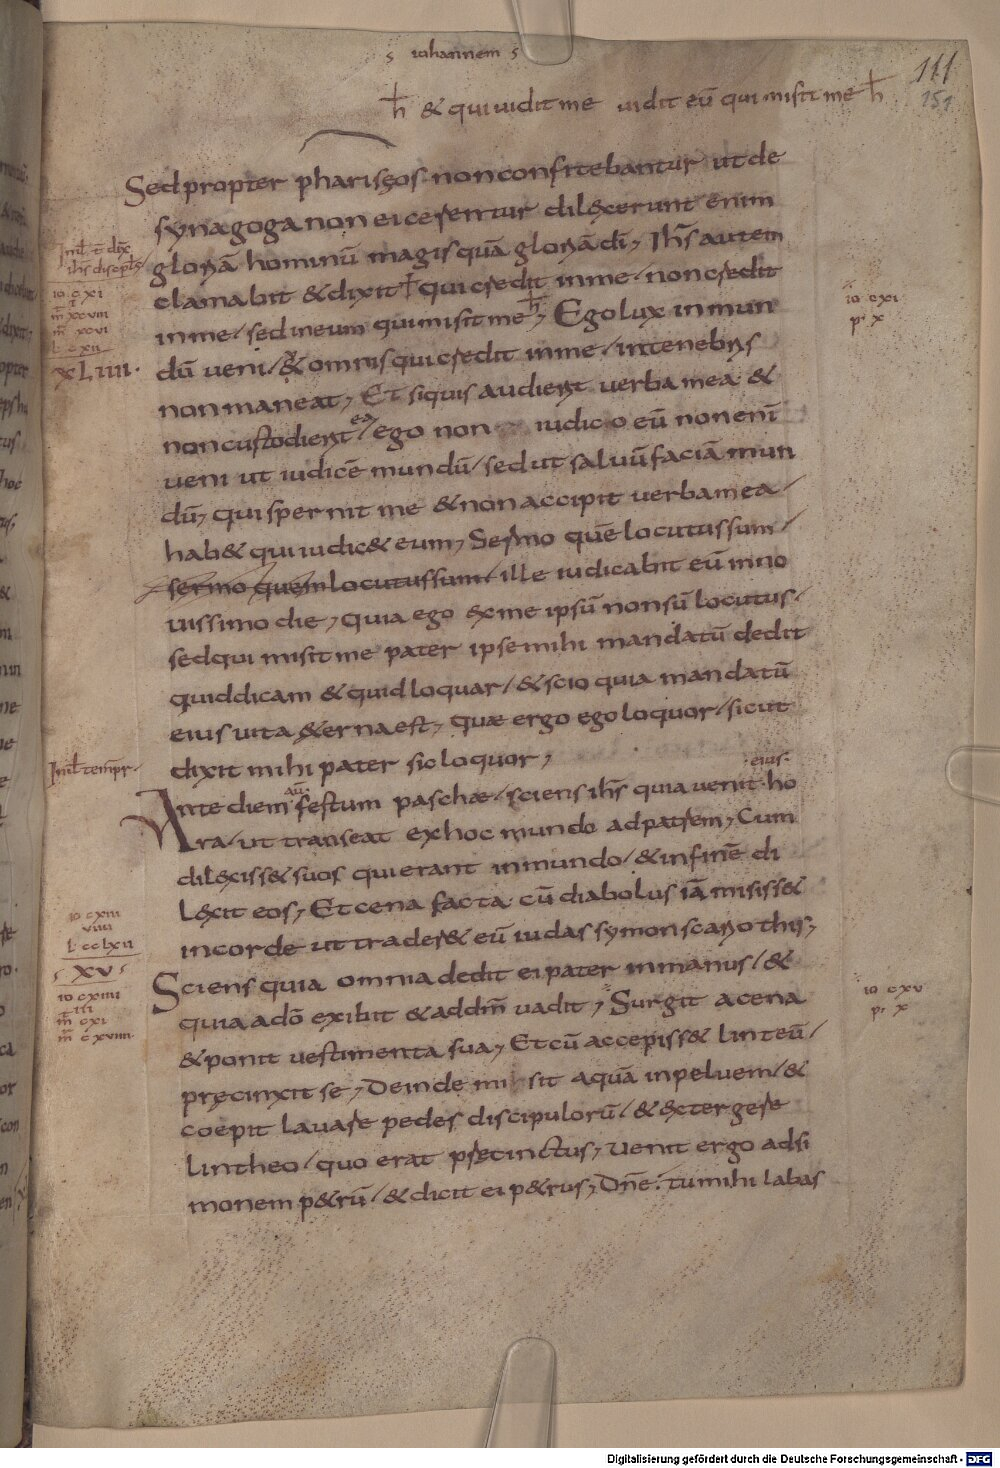 iohannem
ħ & qui uidit me uidit eū qui misit me ħ
111
151
Sed propter pharisęos non confitebantur ut de
synagoga non eicerentur dilexerunt enim
gloriā hominū magis quā gloriā di, Ihs autem
clamabit & dixit qui credit in me / non credit
in me / sed in eum qui misit me ħ, Ego lux in mun
dū ueni / & omnis qui credit in me / in tenebris
non maneat, Et si quis audierit uerba mea &
non custodierit ea, ego non iudico eū non enī
ueni ut iudicē mundū / sed ut saluū faciā mun
dū, qui spernit me & non accipit uerba mea /
hab& qui iudic& eum, Sermo quē locutus sum /
sermo quem locutus sum / ille iudicabit eū in no
uissimo die, quia ego ex me ipsū non sū locutus.
sed qui misit me pater ipse mihi mandatū dedit
quid dicam & quid loquar / & scio quia mandatū
eius uita &erna est, quae ergo ego loquor / sicut
dixit mihi pater sic loquor,
eius
Ante diem au festum paschae / sciens ihs quia uenit ho
ra / ut transeat ex hoc mundo ad patrem, Cum
dilexiss& suos qui erant in mundo / & in finē di
lexit eos, Et cena facta cū diabolus iā misiss&
in corde ut trader& eū iudas symon scariothis,
Sciens quia omnia dedit ei pater in manus / &
quia a dō exibit & ad dm̄ uadit, Surgit a cena
& ponit uestimenta sua, Et cū accepiss& linteū /
precinxit se, Deinde misit aquā in peluem / &
coepit lauare pedes discipulorū / & extergere
lintheo / quo erat precinctus, uenit ergo ad si
monem p&rū / & dicit ei p&rus, Dn̄e. tu mihi labas
io cxi
xLIIII.
io cxi
pr x
io cxiii
uiiii
L cclxii
xv
io cxiiii
iii
m̄ cxi
m̄ cxuiiii
io cxv
pr x
Digitalisierung gefördert durch die Deutsche Forschungsgemeinschaft - DFG